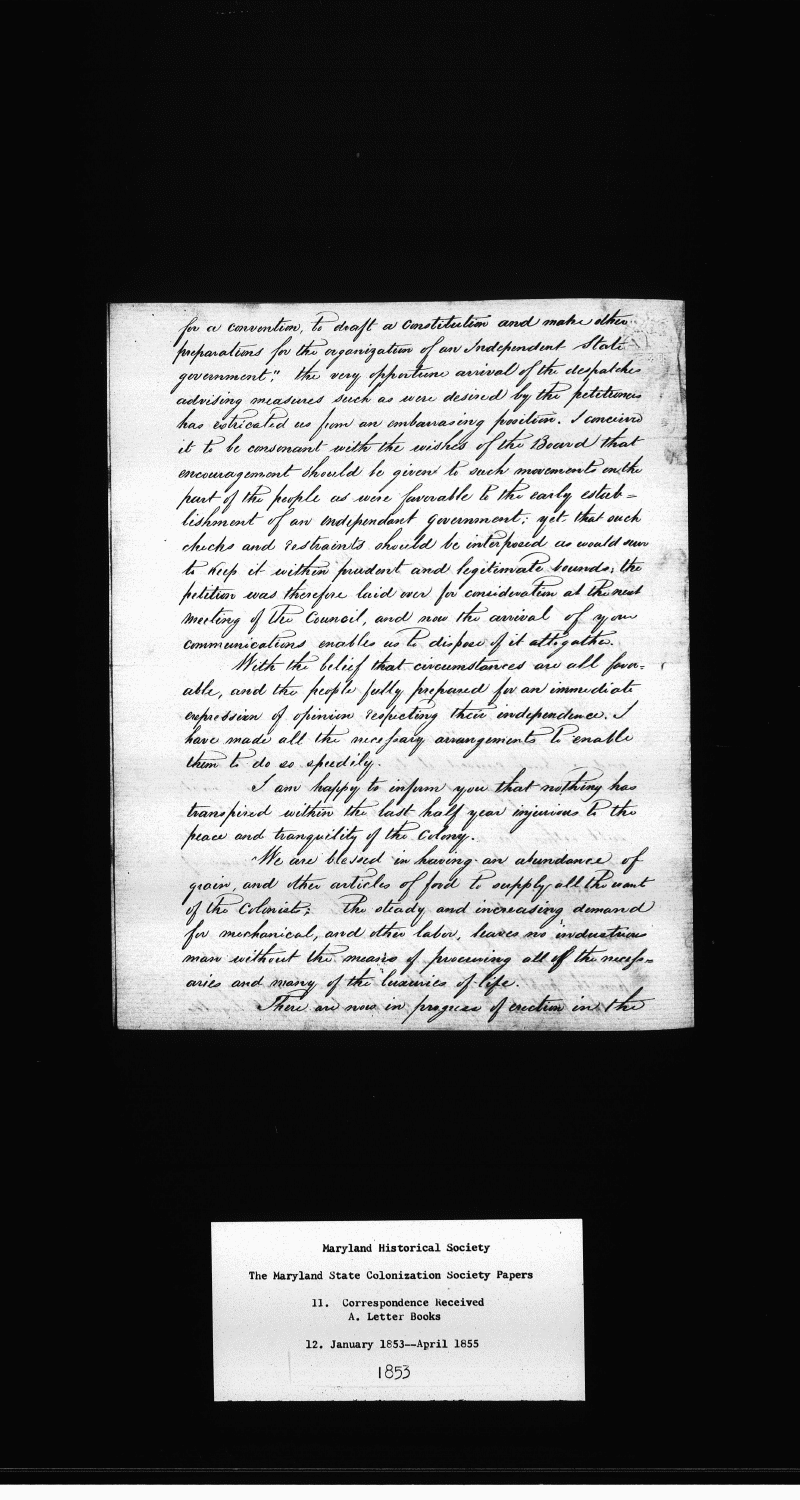 for a convention, to draft a Constitution and make other
preparations for the organization of an Independent State
government"; the very opportune arrival of the despatches
advising measures such as were desired by the petitioners
has extricated us from an embarrasing position. I conceived
it to be consonant with the wishes of the Board that
encouragement should be given to such movements on the
part of the people as were favorable to the early estab=
lishment of an independant government; yet that such
checks and restraints should be interposed as would serve
to keep it within prudent and legitimate bounds; the
petition was therefore laid over for consideration at the next
meeting of the Council, and now the arrival of your
communications enables us to dispose of it altogather.
With the belief that circumstances are all favor=
able, and the people fully prepared for an immediate
expression of opinion respecting their independence. I
have made all the necessary arrangements to enable
them to do so speedily.
I am happy to inform you that nothing has
transpired within the last half year injurious to the
peace and tranquility of the Colony.
We are blessed in having an abundance of
grain, and other articles of food to supply all the want
of the Colonists; the steady and increasing demand
for mechanical, and other labor, leaves no industrious
man without the means of procuring all of the necess=
aries and many of the luxuries of life.
There are now in progress of erection in the
Maryland Historical Society
The Maryland State Colonization Society Papers
11. Correspondence Received
A. Letter Books
12. January 1853--April 1855
1853